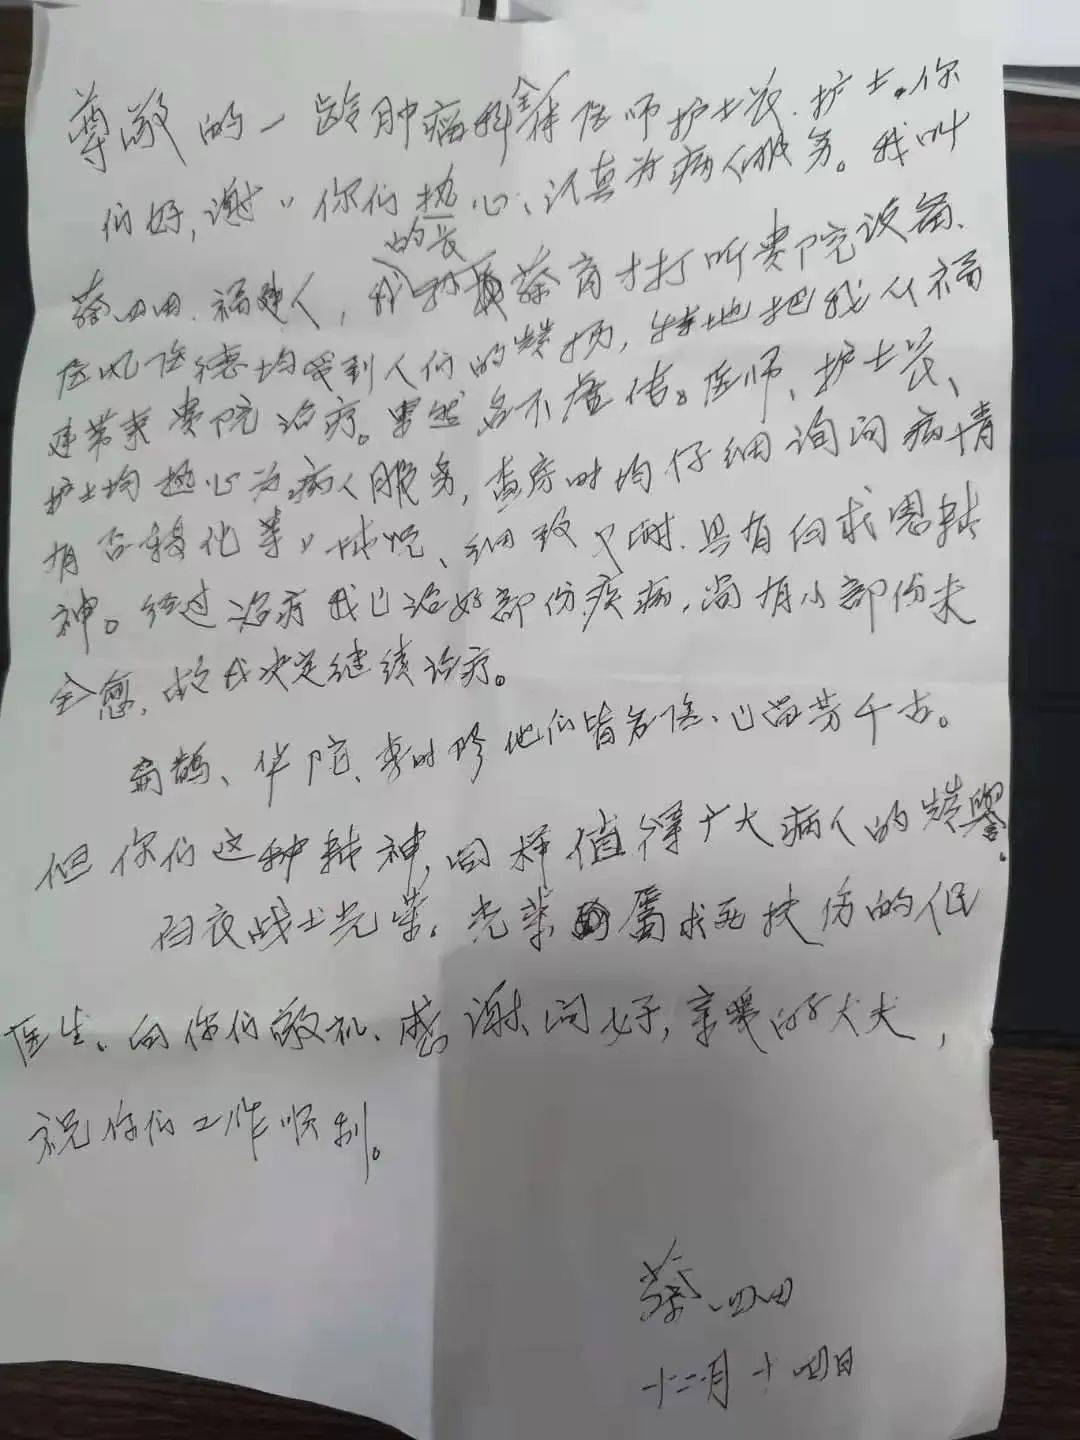 尊敬的一龄肿瘤科全体医师护士长、护士。你
们好,谢〃你们热心、认真为病人服务。我叫
的长
蔡四田、福建人,我孙蔡育才打听贵院设备、
医风医德均受到人们的赞扬,特地把我从福
建带来贵院治疗。果然名不虚传。医师、护士长、
护士均热心为病人服务,查房时均仔细询问病情
有否变化等〃 状况、细致入微、具有白求恩精
神。经过治疗我已治好部份疾病,尚有小部份未
全愈,故我决定继续治疗。
扁鹊、华陀、李时珍他们皆名医、已留芳千古。
但你们这种精神,同样值得广大病人的赞誉。
白衣战士光荣。光荣属救死扶伤的
医生、向你们敬礼、感谢、问好,亲爱的大夫,
祝你们工作顺利。
蔡四田
十二月十四日